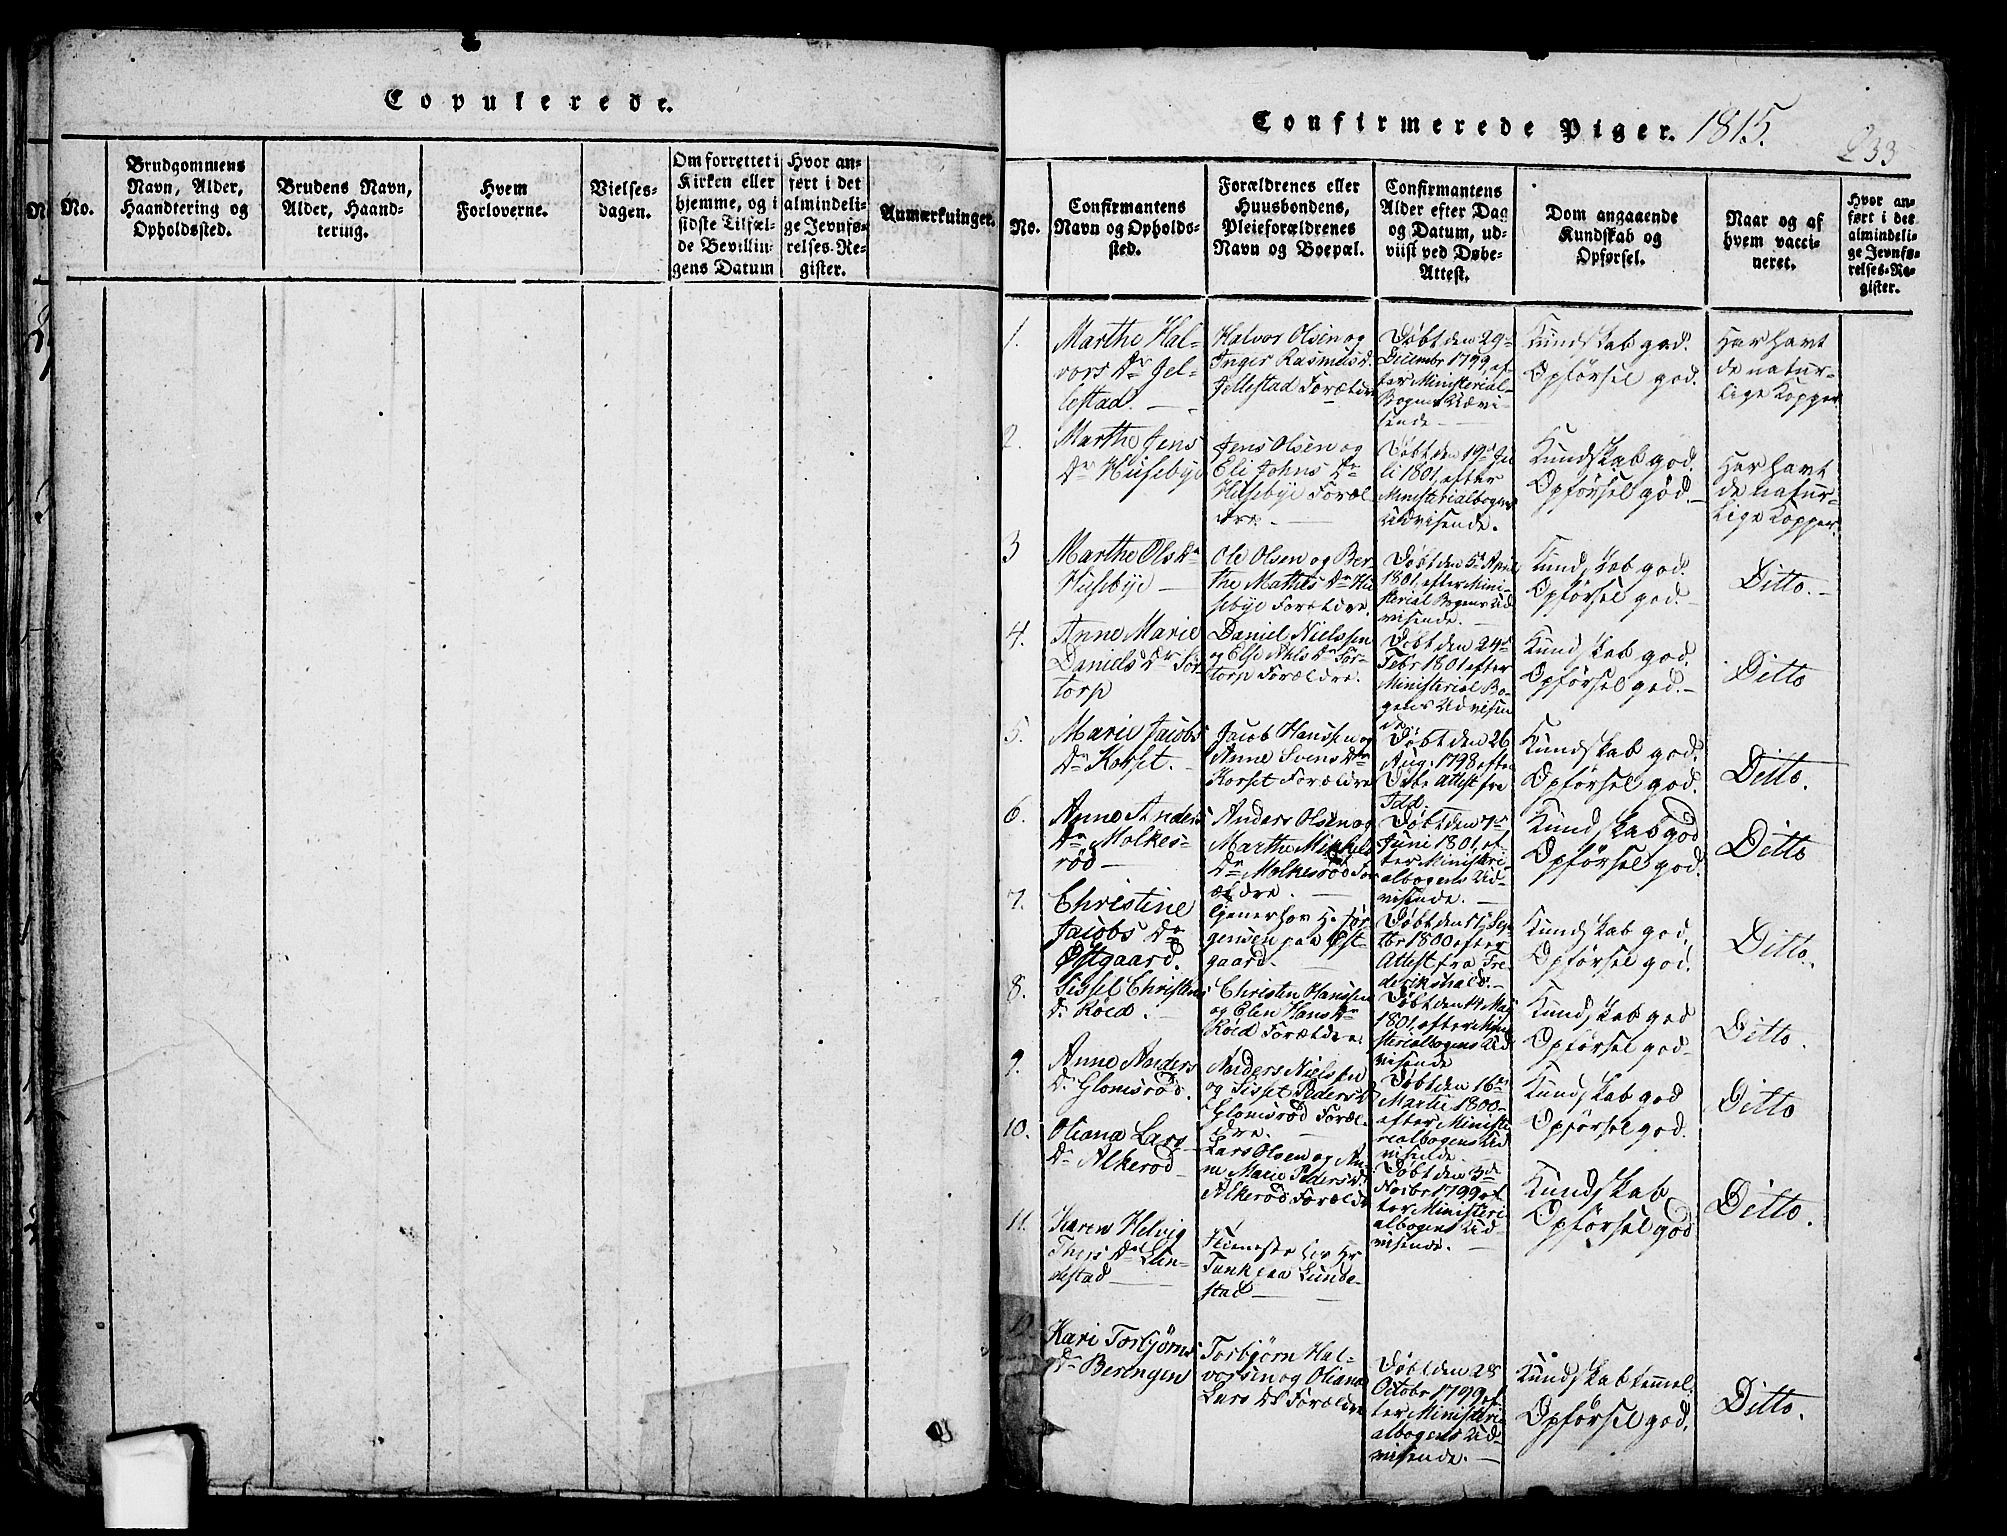 Copulerede.
No.
Brudgommens
Navn, Alder,
Haandtering og
Opholdssted.
Brudens Navn,
Alder, Haand-
tering.
Hvem
Forloverne.
Vielses-
dagen.
Om forrettet i
Kirken eller
hjemme, og i
sidste Tilfæl-
de Bevillin-
gens Datum
Hvor an-
ført i det
almindeli-
ge Jevnfø-
relses-Re-
gister.
Anmærkninger.
Confirmerede Piger. 1815.
233
No.
Confirmantens
Navn og Opholds-
sted.
Forældrenes eller
Huusbondens,
Pleieforældrenes
Navn og Boepæl.
Confirmantens
Alder efter Dag
og Datum, ud-
viist ved Døbe-
Attest.
Dom angaaende
Kundskab og
Opførsel.
Naar og af
hvem vacci-
neret.
Hvor an-
ført i det
almindeli-
ge Jevnfø-
relses-Re-
gister.
1.
Marthe Hal-
vors Dr Jel-
lestad.
Halvor Olsen og
Inger Rasmus D.
Jellestad Forældre
Døbt den 29de
Decembr 1799, ef-
ter Ministerial-
Bogens Udvi-
sende
Kundskab god.
Opførsel god.
Har havt
de natur-
lige Kopper
2.
Marthe Jens
Dr Husebye
Jens Olsen og
Eli Johns Dr
Husebye Foræl
dre
Døbt den 19de Ju
li 1801, efter
Ministerialbogens
Udvisende.
Kundskab god.
Opførsel god.
Har havt
de natur-
lige Kopper.
3
Marthe Ols Dr
Husebye
Ole Olsen og Ber
the Mathis Dr Hu
sebye Forældre.
Døbt den 5te April
1801, efter Mini-
sterial Bogens Ud
visende.
Kundskab god.
Opførsel god.
Ditto.
4.
Anne Marie
Daniels Dr Tor
torp
Daniel Nielssen
og Else Nils Dr Tor-
torp Forældre.
Døbt den 24de
Febr 1801 efter
Ministerial Bo-
gens Udvisen
de
Kundskab god.
Opførsel god.
Ditto
5.
Marie Jacobs
Dr Korset.
Jacob Hanssen og
Anne Svens Dr
Korset Forældre
Døbt den 26
Aug. 1798 efter
Døbe Attest fra
Idd.
Kundskab god.
Opførsel god.
Ditto.
6.
Anne Anders
Dr Molkes-
rød
Anders Olsen og
Marthe Mikkels
Dr Molkesrød For
ældre.
Døbt den 7de
Juni 1801, ef
ter Ministeri
albogens Ud-
visende.
Kundskab god
Opførsel god.
Ditto
7.
Christine
Jacobs Dr
Østgaard.
tjener hos H. Jør
gensen paa Øst-
gaard.
Døbt den Sep
tbr 1800 efter
Attest fra Fre
derikshald.
Kundskab god,
Opførsel god.
Ditto.
8.
Sissel Christens
Dr Røed.
Christen Hanssen
og Elen Hans Dr
Røed Forældre
Døbt den 14 Mai
1801, efter Mini
sterialbogens Ud
visende
Kundskab god
Opførsel god
Ditto.
9.
Anne Anders
Dr Glomsrød.
Anders Nielssen
og Sisset Peders D
Glomsrød Foræl
dre.
Døbt den 16de
Martii 1800
efter Ministe
rialbogens Ud
visende.
Kundskab god
Opførsel god.
Ditto
10.
Oliana Lars
Dr Alkerød
Lars Olsen og An
ne Marie Peders D.
Alkerød Forældre
Døbt den 3de
Novbr 1799 ef
ter Ministeri
albogens Ud-
visende.
Kundskab
Opførsel god
Ditto.
11.
Karen Helvig
Thers Dr Lun-
destad
Tieneste hos Hr
Tank paa Lunde-
stad
12.
Kari Torbjørns
Dr Berengen
Torbjørn Hal-
vorsen og Oliana
Lars Dr Forældre
Døbt den 28
Octobr 1799 ef
ter Ministeri
albogens Ud-
visende.
Kundskab temmel.
Opførsel god.
Ditto.